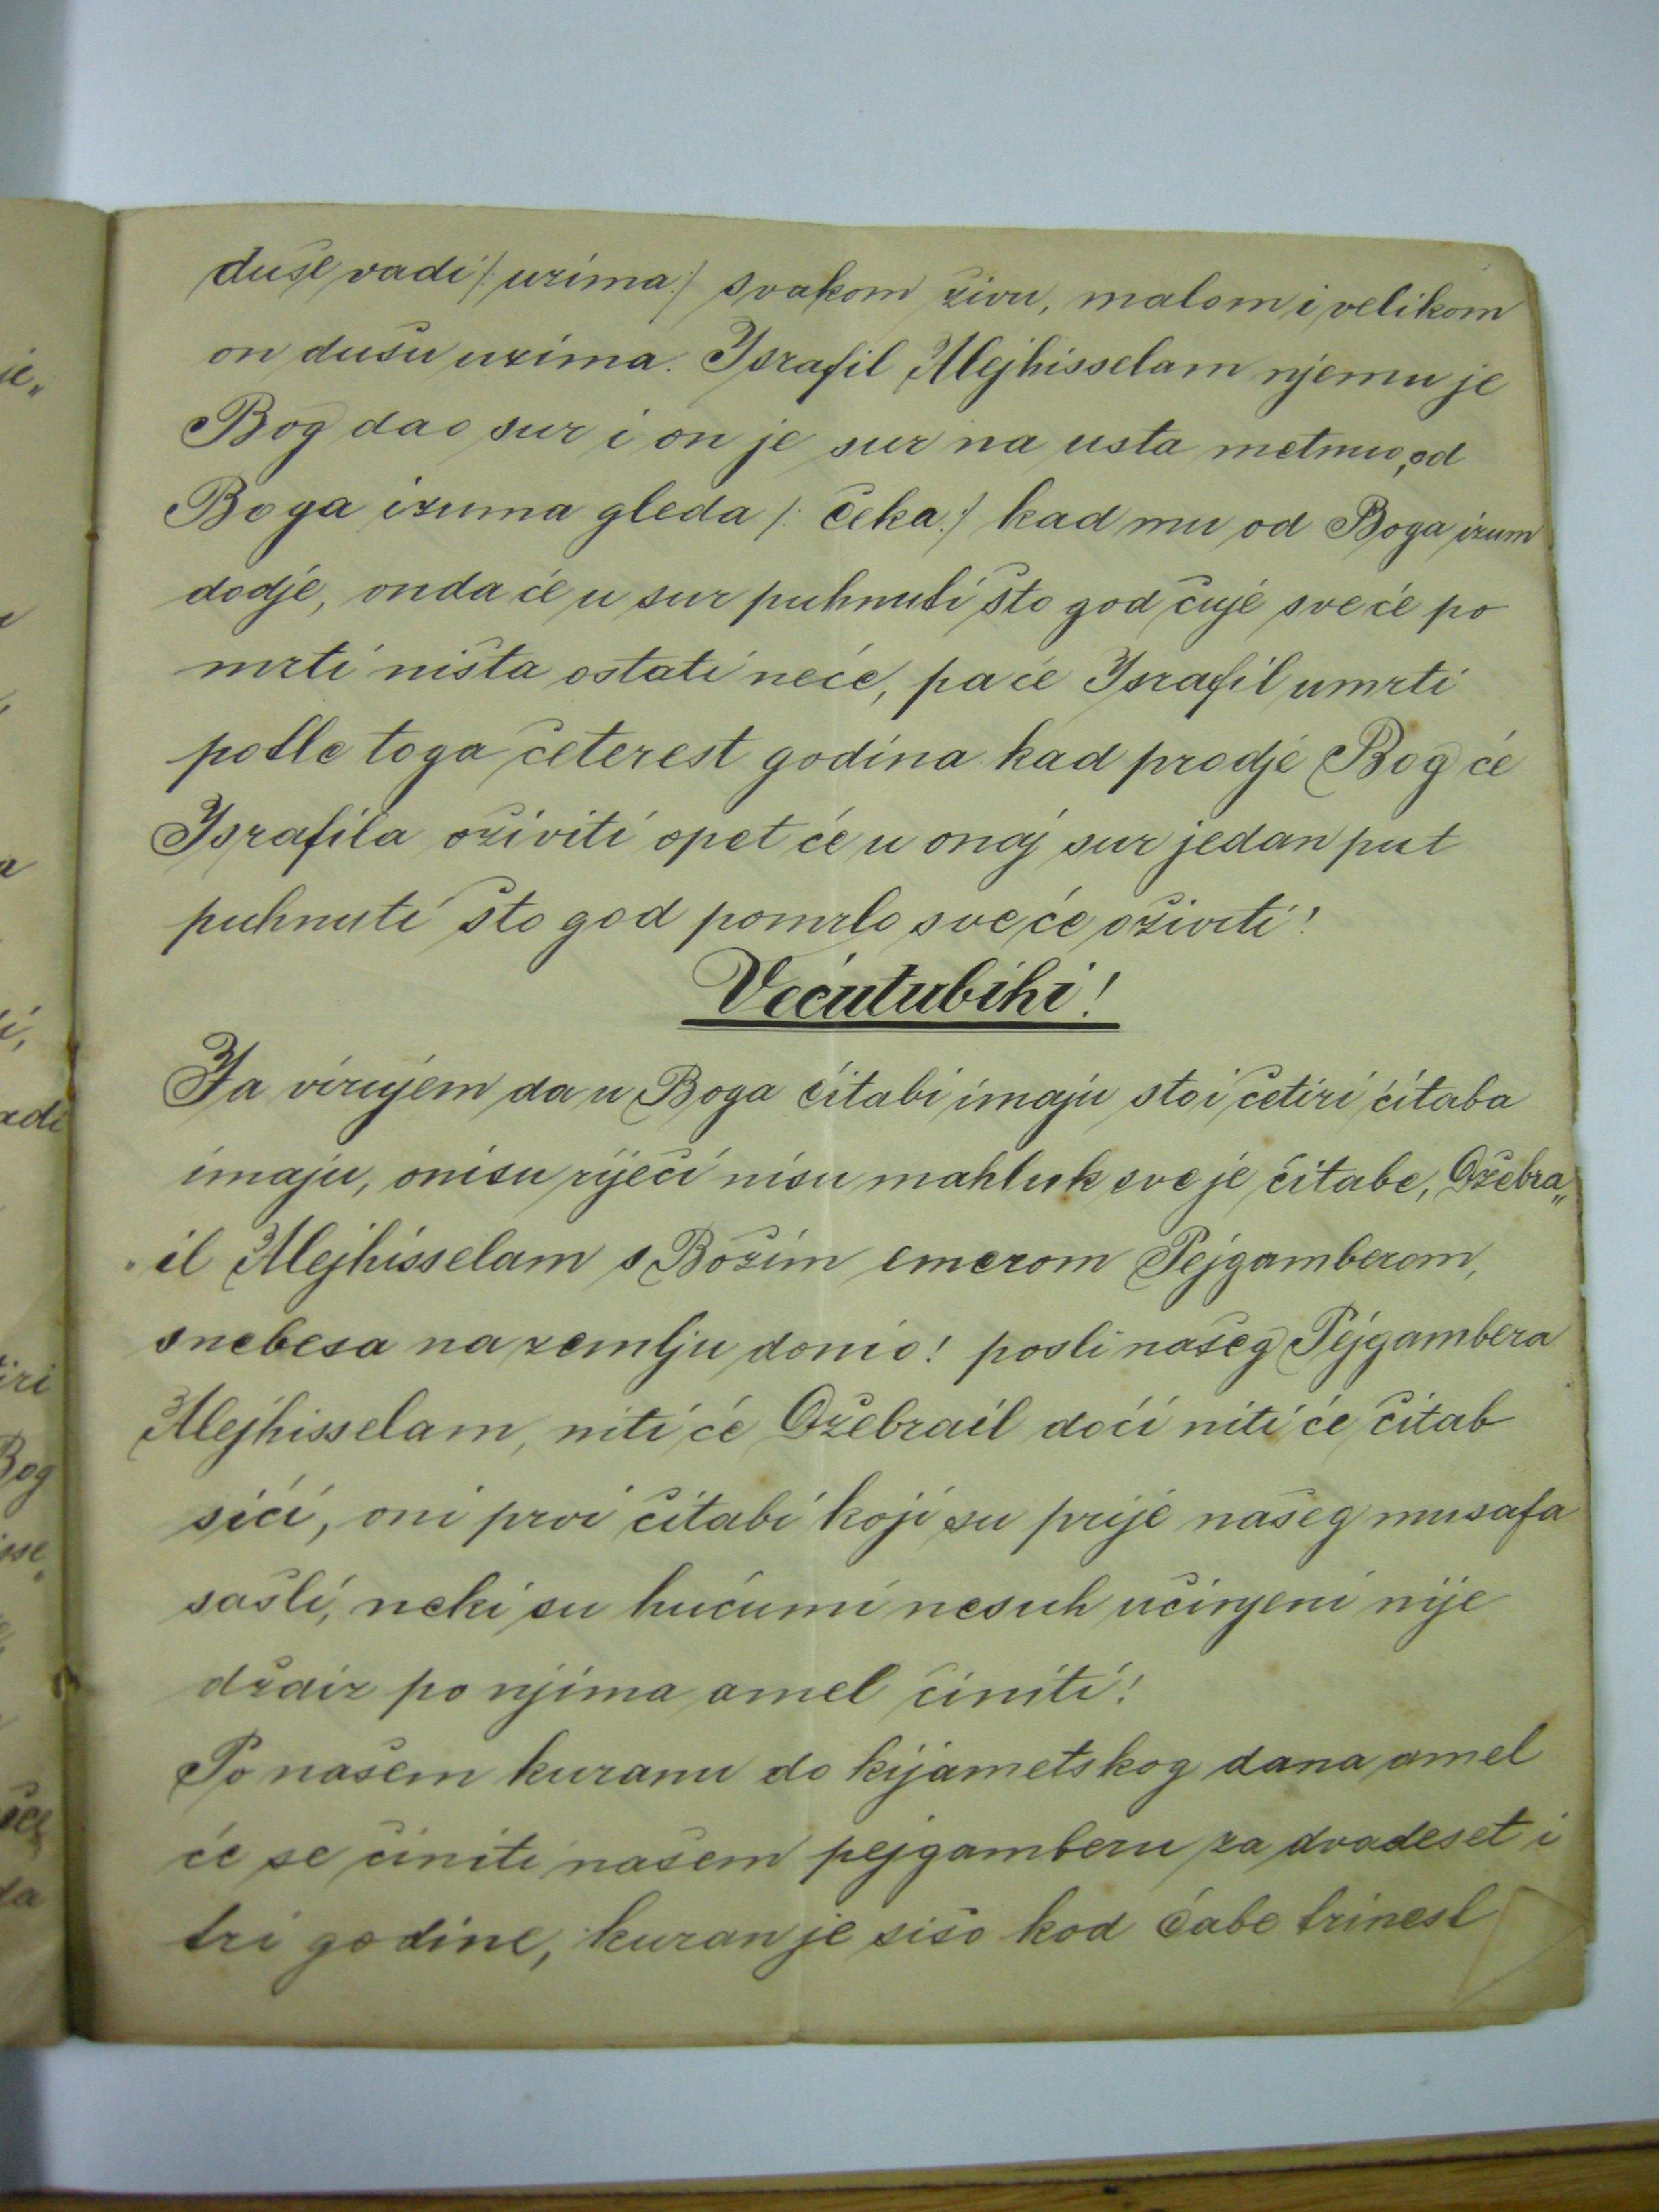 duše vadi /: uzima :/ svakom živu, malom i velikom
on dušu uzima. Israfil Alejhisselam njemu je
Bog dao sur i on je sur na usta metnuo, od
Boga izuma gleda /: čeka :/ kad mu od Boga izum
dodje, onda će u sur puhnuti što god čuje sve će po
mrti ništa ostati neće, pa će Israfil umrti
potle toga četerest godina kad prodje Bog će
Israfila oživiti opet će u onaj sur jedan put
puhnuti što god pomrlo sve će oživiti!
Većutubihi!
Ja virujem da u Boga ćitabi imaju sto i četiri ćitaba
imaju, oni su riječi nisu mahluk sve je ćitabe, Džebra„
il Alejhisselam s Božim emerom Pejgamberom,
s nebesa na zemlju donio! posli našeg Pejgambera
Alejhisselam, niti će Džebrail doći niti će ćitab
sići, oni prvi ćitabi koji su prije našeg musafa
sašli, neki su hućumi nesuh učinjeni nije
džaiz po njima amel činiti!
Po našem kuranu do kijametskog dana amel
će se činiti našem pejgamberu za dvadeset i
tri godine, kuran je sišo kod Ćabe trinest
je„
adi
iri
Bog
da